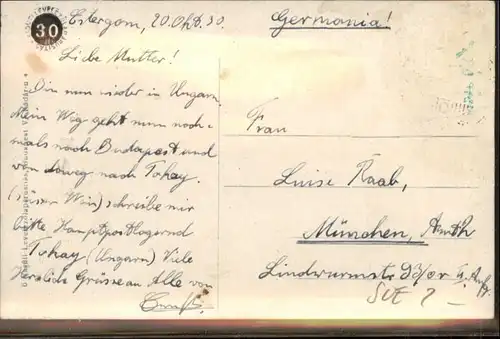 30
Estergom, 20. Okt. 30.
Germania!
Liebe Mutter!
Bin nun wieder in Ungarn,
Mein Weg geht nun noch-
mals nach Budapest und
von da weg nach Tokay.
(Süsser Wein) schreibe mir
bitte Hauptpostlagernd
Tokay (Ungarn) Viele
Herzliche Grüsse an Alle von
Frau
Luise Raab,
München,
Lindwurmstr.